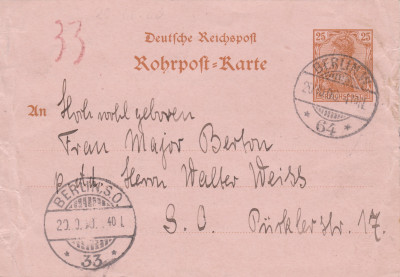 33
Deutsche Reichspost
Rohrpost-Karte
25 25
BERLIN
64
An Hochwohlgeboren
Frau Major Berton
Herrn Walter Weiss
S. O. Pücklerstr. 17.
BERLIN.S.O.
33